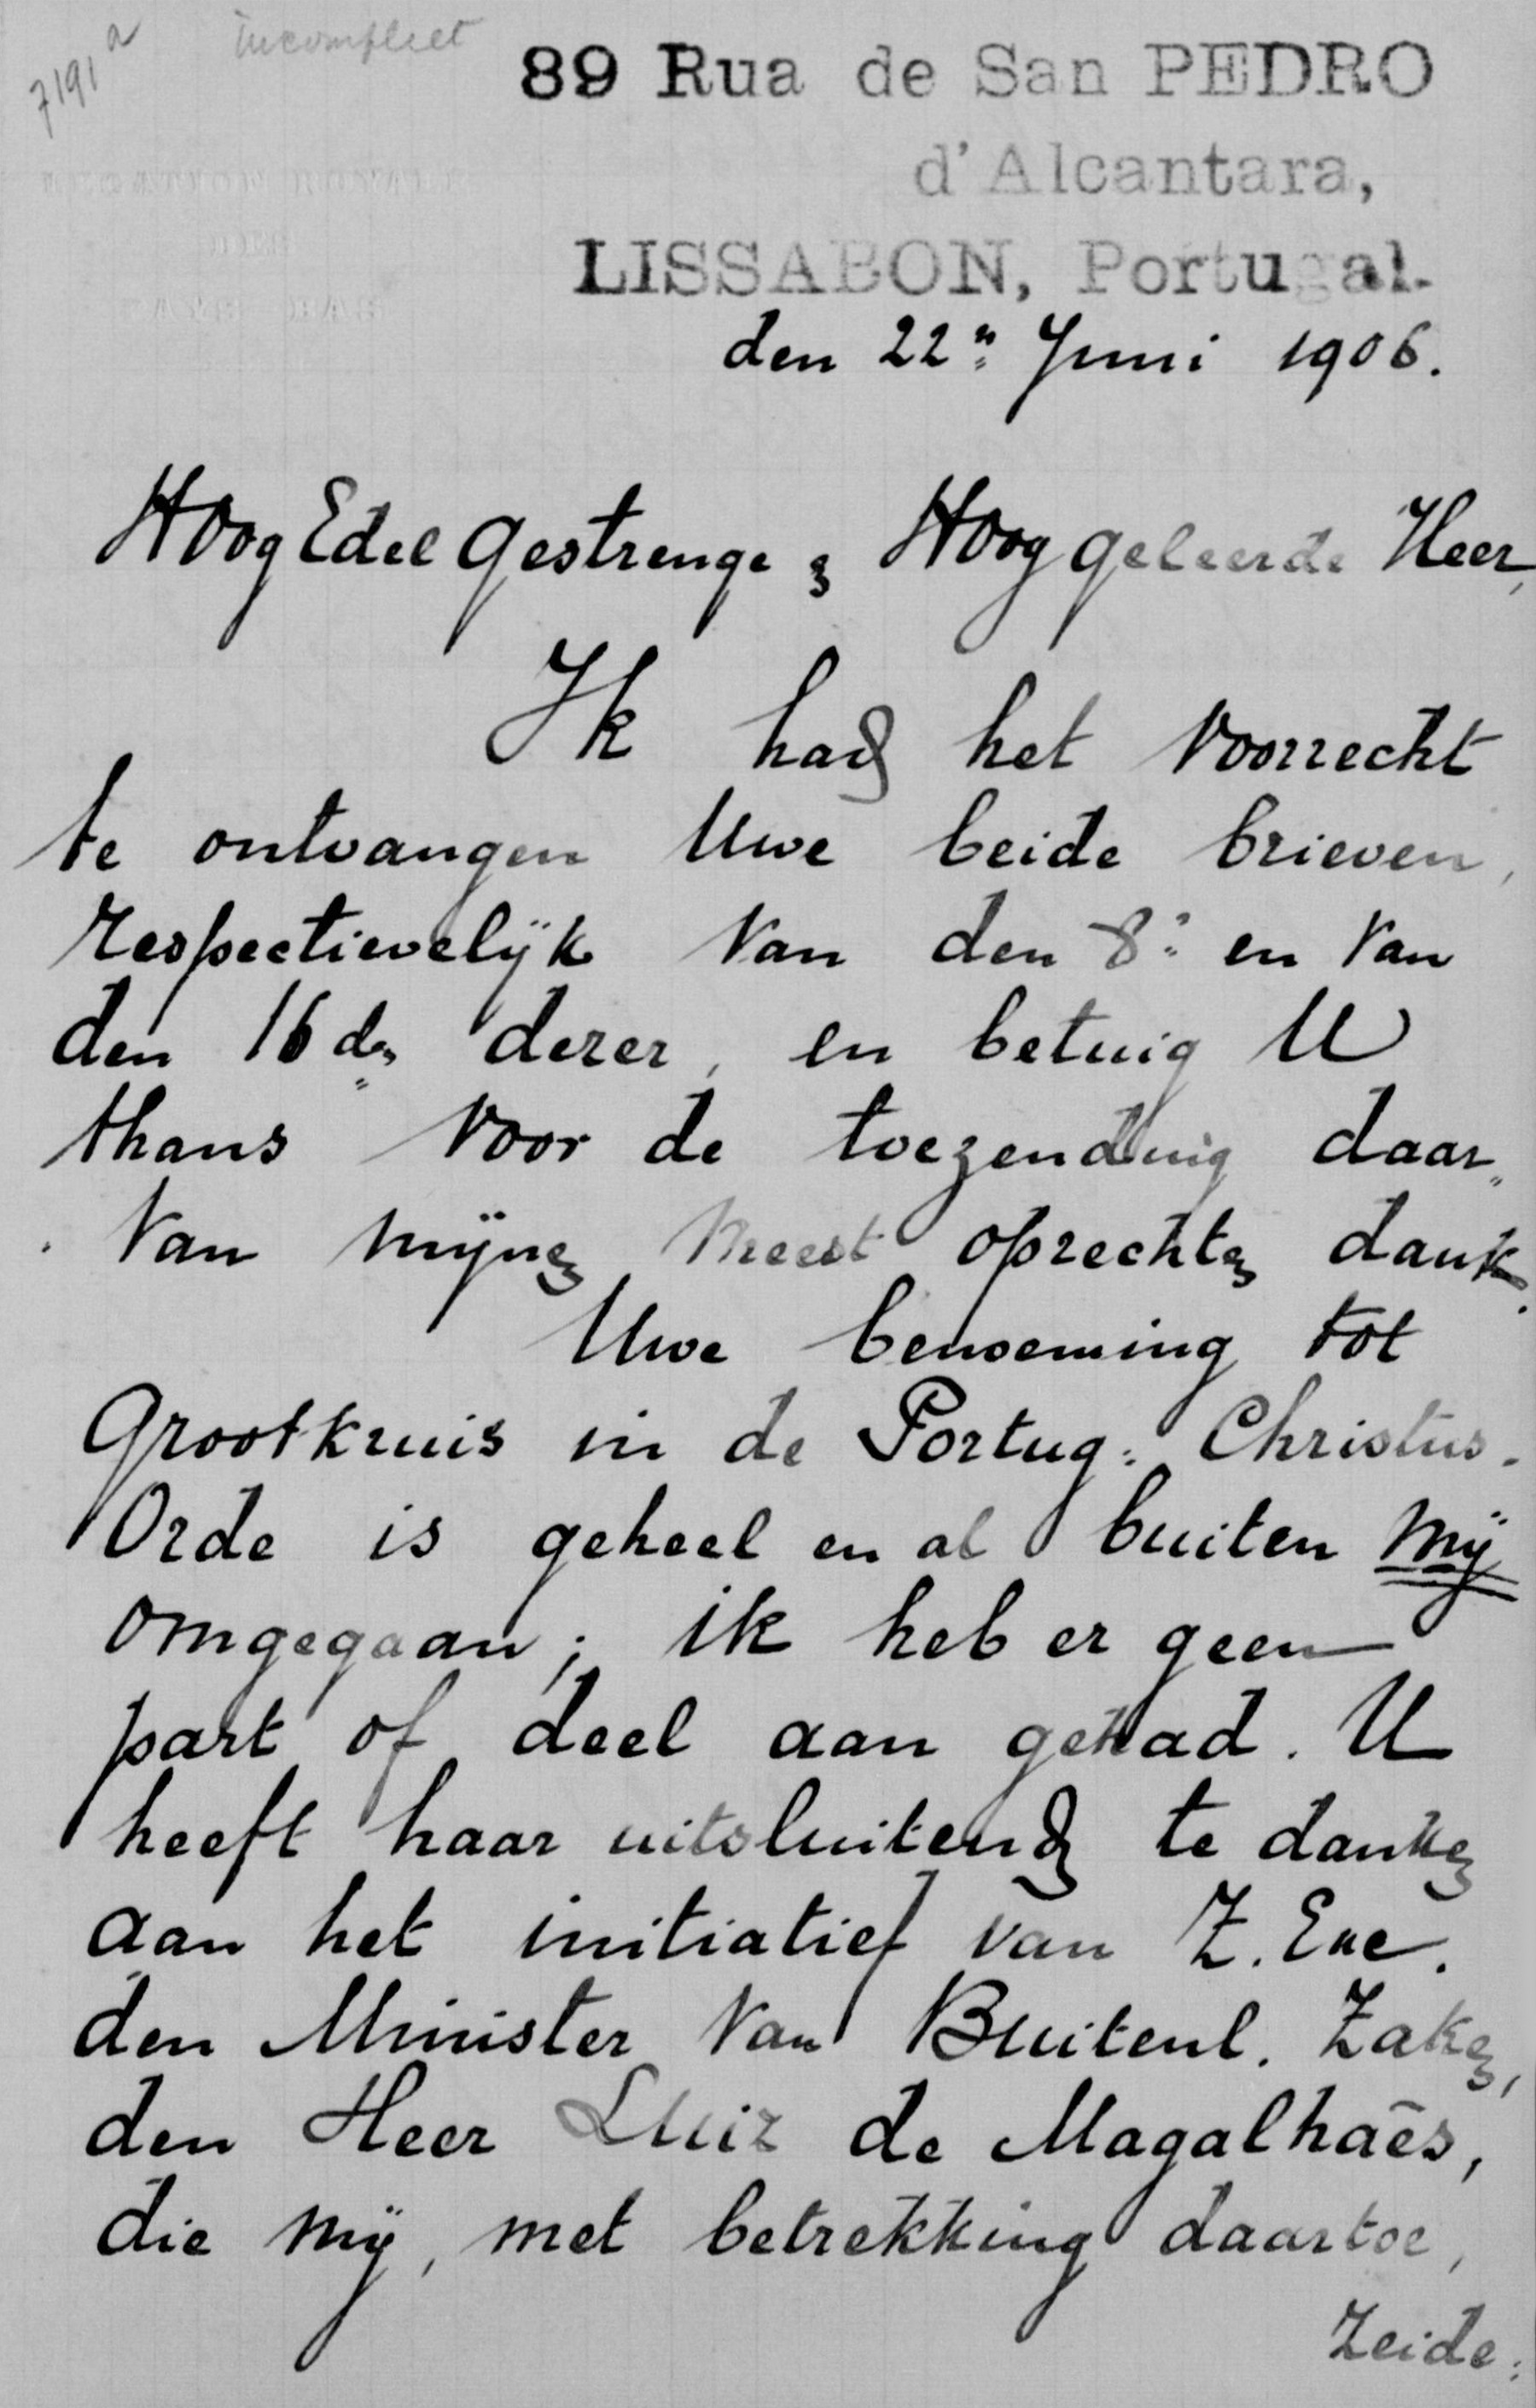 7191a
incompleet
89 Rua de San PEDRO
d'Alcantara,
LISSABON, Portugal.
den 22n Juni 1906.
HoogEdelGestrenge, Hooggeleerde Heer,
Ik had het voorrecht
te ontvangen Uwe beide brieven,
respectievelijk van den 8n en van
den 16den dezer, en betuig U
thans voor de toezending daar„
van mijnen meest oprechten dank.
Uwe benoeming tot
Grootkruis in de Portug: Christus-
Orde is geheel en al buiten mij
omgegaan; ik heb er geen
part of deel aan gehad. U
heeft haar uitsluitend te danken
aan het initiatief van Z. Exc.
den Minister van Buitenl. Zaken,
den Heer Luiz de Magalhaês,
die mij, met betrekking daartoe,
zeide: